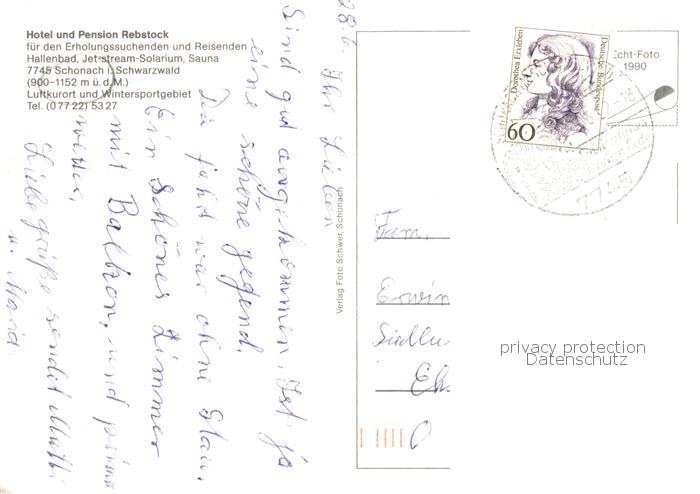 Hotel und Pension Rebstock
für den Erholungssuchenden und Reisenden
Hallenbad, Jet-stream-Solarium, Sauna
7745 Schonach i. Schwarzwald
(900–1152 m ü. d. M.)
Luftkurort und Wintersportgebiet
Tel. (0 77 22) 53 27
28.6.
Ihr Lieben
Sind gut angekommen. Ist ja
eine schöne gegend.
Die fahrt war ohne Stau.
Ein Schönes Zimmer
mit Balkon, und prima
wetter.
Liebe grüße sendet
u. Maria.
Verlag Foto Schwer, Schonach
Echt-Foto
1990
Dorothea Erxleben
Deutsche Bundespost
60
7745
Fam.
Erwin
Siedlu
privacy protection
Datenschutz